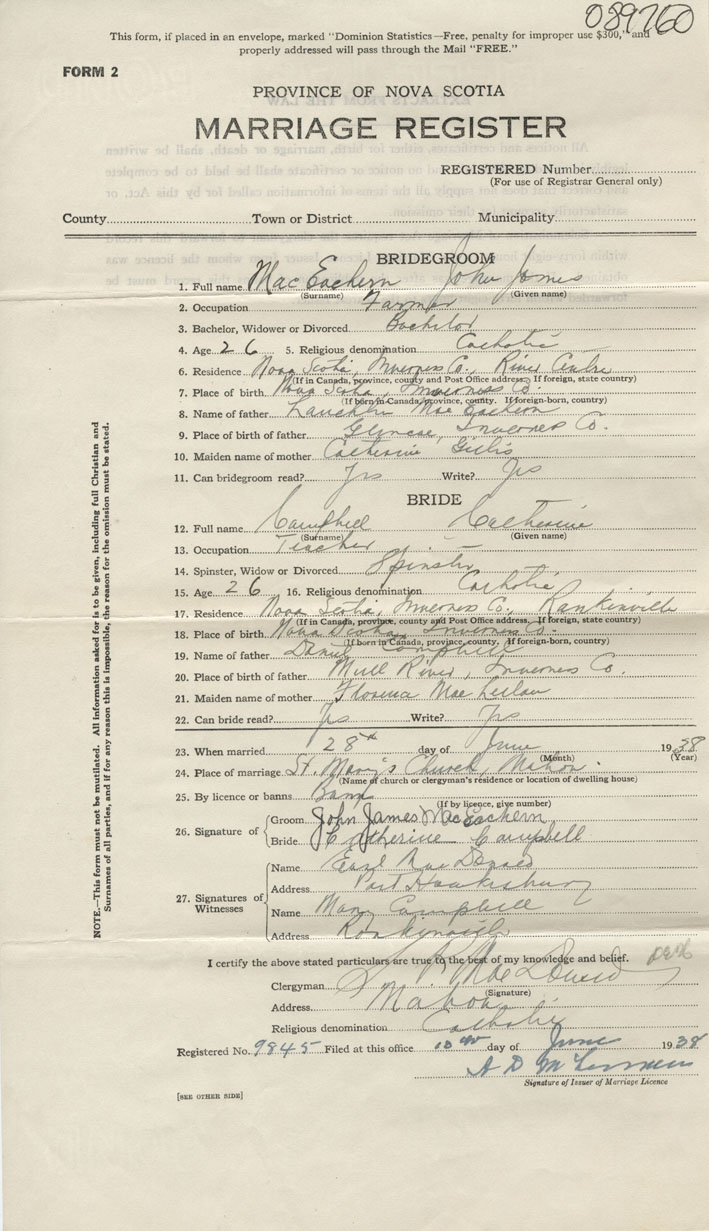 089760
This form, if placed in an envelope, marked "Dominion Statistics—Free, penalty for improper use $300," and
properly addressed will pass through the Mail "FREE."
FORM 2
PROVINCE OF NOVA SCOTIA
MARRIAGE REGISTER
REGISTERED Number
(For use of Registrar General only)
County Town or District Municipality
BRIDEGROOM
1. Full name MacEachern John James
(Surname) (Given name)
2. Occupation Farmer
3. Bachelor, Widower or Divorced Bachelor
4. Age 26 5. Religious denomination Catholic
6. Residence Nova Scotia, Inverness Co., River Centre
(If in Canada, province, county and Post Office address. If foreign, state country)
7. Place of birth Nova Scotia, Inverness Co.
(If born in Canada, province, county. If foreign-born, country)
8. Name of father Lauchlin MacEachern
9. Place of father Glencoe, Inverness Co.
10. Maiden name of mother Catherine Gillis
11. Can bridegroom read? Yes Write? Yes
BRIDE
12. Full name Campbell Catherine
(Surname) (Given name)
13. Occupation Teacher
14. Spinster, Widow or Divorced Spinster
15. Age 26 16. Religious denomination Catholic
17. Residence Nova Scotia, Inverness Co., Rankinville
(If in Canada, province, county and Post Office address. If foreign, state country)
18. Place of birth Nova Scotia, Inverness Co.
(If born in Canada, province, county. If foreign-born, country)
19. Name of father Daniel Campbell
20. Place of birth of father Mull River, Inverness Co.
21. Maiden name of mother Florence MacLellan
22. Can bride read? Yes Write? Yes
23. When married 28th day of June 1938
(Month) (Year)
24. Place of marriage St. Mary's Church, Mabou.
(Name of church or clergyman's residence or location of dwelling house)
25. By licence or banns Banns
(If by licence, give number)
26. Signature of Groom John James MacEachern
Bride Catherine Campbell
27. Signatures of Witnesses
Name Earl MacDonald
Address Port Hawkesbury
Name Mary Campbell
Address Rankinville
I certify the above stated particulars are true to the best of my knowledge and belief.
Clergyman MacDonald
(Signature)
Address Mabou
Religious denomination Catholic
Registered No. 9845 Filed at this office day of June 1938
Signature of Issuer of Marriage Licence
[SEE OTHER SIDE]
NOTE.—This form must not be mutilated. All information asked for is to be given, including full Christian and
Surnames of all parties, and if for any reason this is impossible, the reason for the omission must be stated.